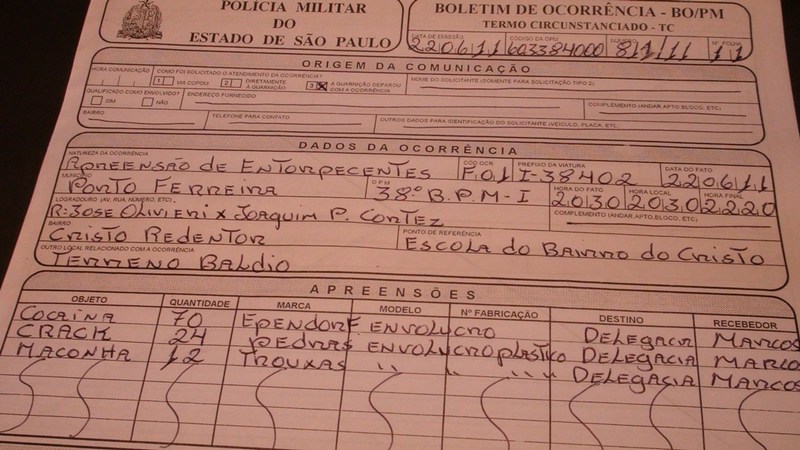 POLÍCIA MILITAR
DO
ESTADO DE SÃO PAULO
BOLETIM DE OCORRÊNCIA - BO/PM
TERMO CIRCUNSTANCIADO - TC
DATA DE EMISSÃO CÓDIGO DA OPM Nº FOLHA
220611 603384000 11
ORIGEM DA COMUNICAÇÃO
HORA COMUNICAÇÃO COMO FOI SOLICITADO O ATENDIMENTO DA OCORRÊNCIA? NOME DO SOLICITANTE (SOMENTE PARA SOLICITAÇÃO TIPO 2)
1 VIA COPOM 2 DIRETAMENTE À GUARNIÇÃO 3 X A GUARNIÇÃO DEPAROU COM A OCORRÊNCIA
QUALIFICADO COMO ENVOLVIDO? ENDEREÇO FORNECIDO COMPLEMENTO (ANDAR, APTO, BLOCO, ETC)
SIM NÃO
BAIRRO TELEFONE PARA CONTATO OUTROS DADOS PARA IDENTIFICAÇÃO DO SOLICITANTE (VEÍCULO, PLACA, ETC.
DADOS DA OCORRÊNCIA
NATUREZA DA OCORRÊNCIA CÓD OCR PREFIXO DA VIATURA DATA DO FATO
APREENSÃO DE ENTORPECENTES F.01 I-38402 220611
MUNICÍPIO OPM HORA DO FATO HORA LOCAL HORA FINAL
PORTO FERREIRA 38º B.P.M-I 2030 2030 2220
LOGRADOURO (AV, RUA, NÚMERO, ETC). COMPLEMENTO (ANDAR, APTO, BLOCO, ETC)
R: JOSE OLIVIERI X JOAQUIM P. CORTEZ
BAIRRO PONTO DE REFERÊNCIA
CRISTO REDENTOR ESCOLA DO BAIRRO DO CRISTO
OUTRO LOCAL RELACIONADO COM A OCORRÊNCIA
TERRENO BALDIO
APREENSÕES
OBJETO QUANTIDADE MARCA MODELO Nº FABRICAÇÃO DESTINO RECEBEDOR
COCAINA 70 EPENDORF ENVOLUCRO DELEGACIA MARCOS
CRACK 24 PEDRAS ENVOLUCRO PLASTICO DELEGACIA MARCOS
MACONHA 12 TROUXAS " " " " DELEGACIA MARCOS